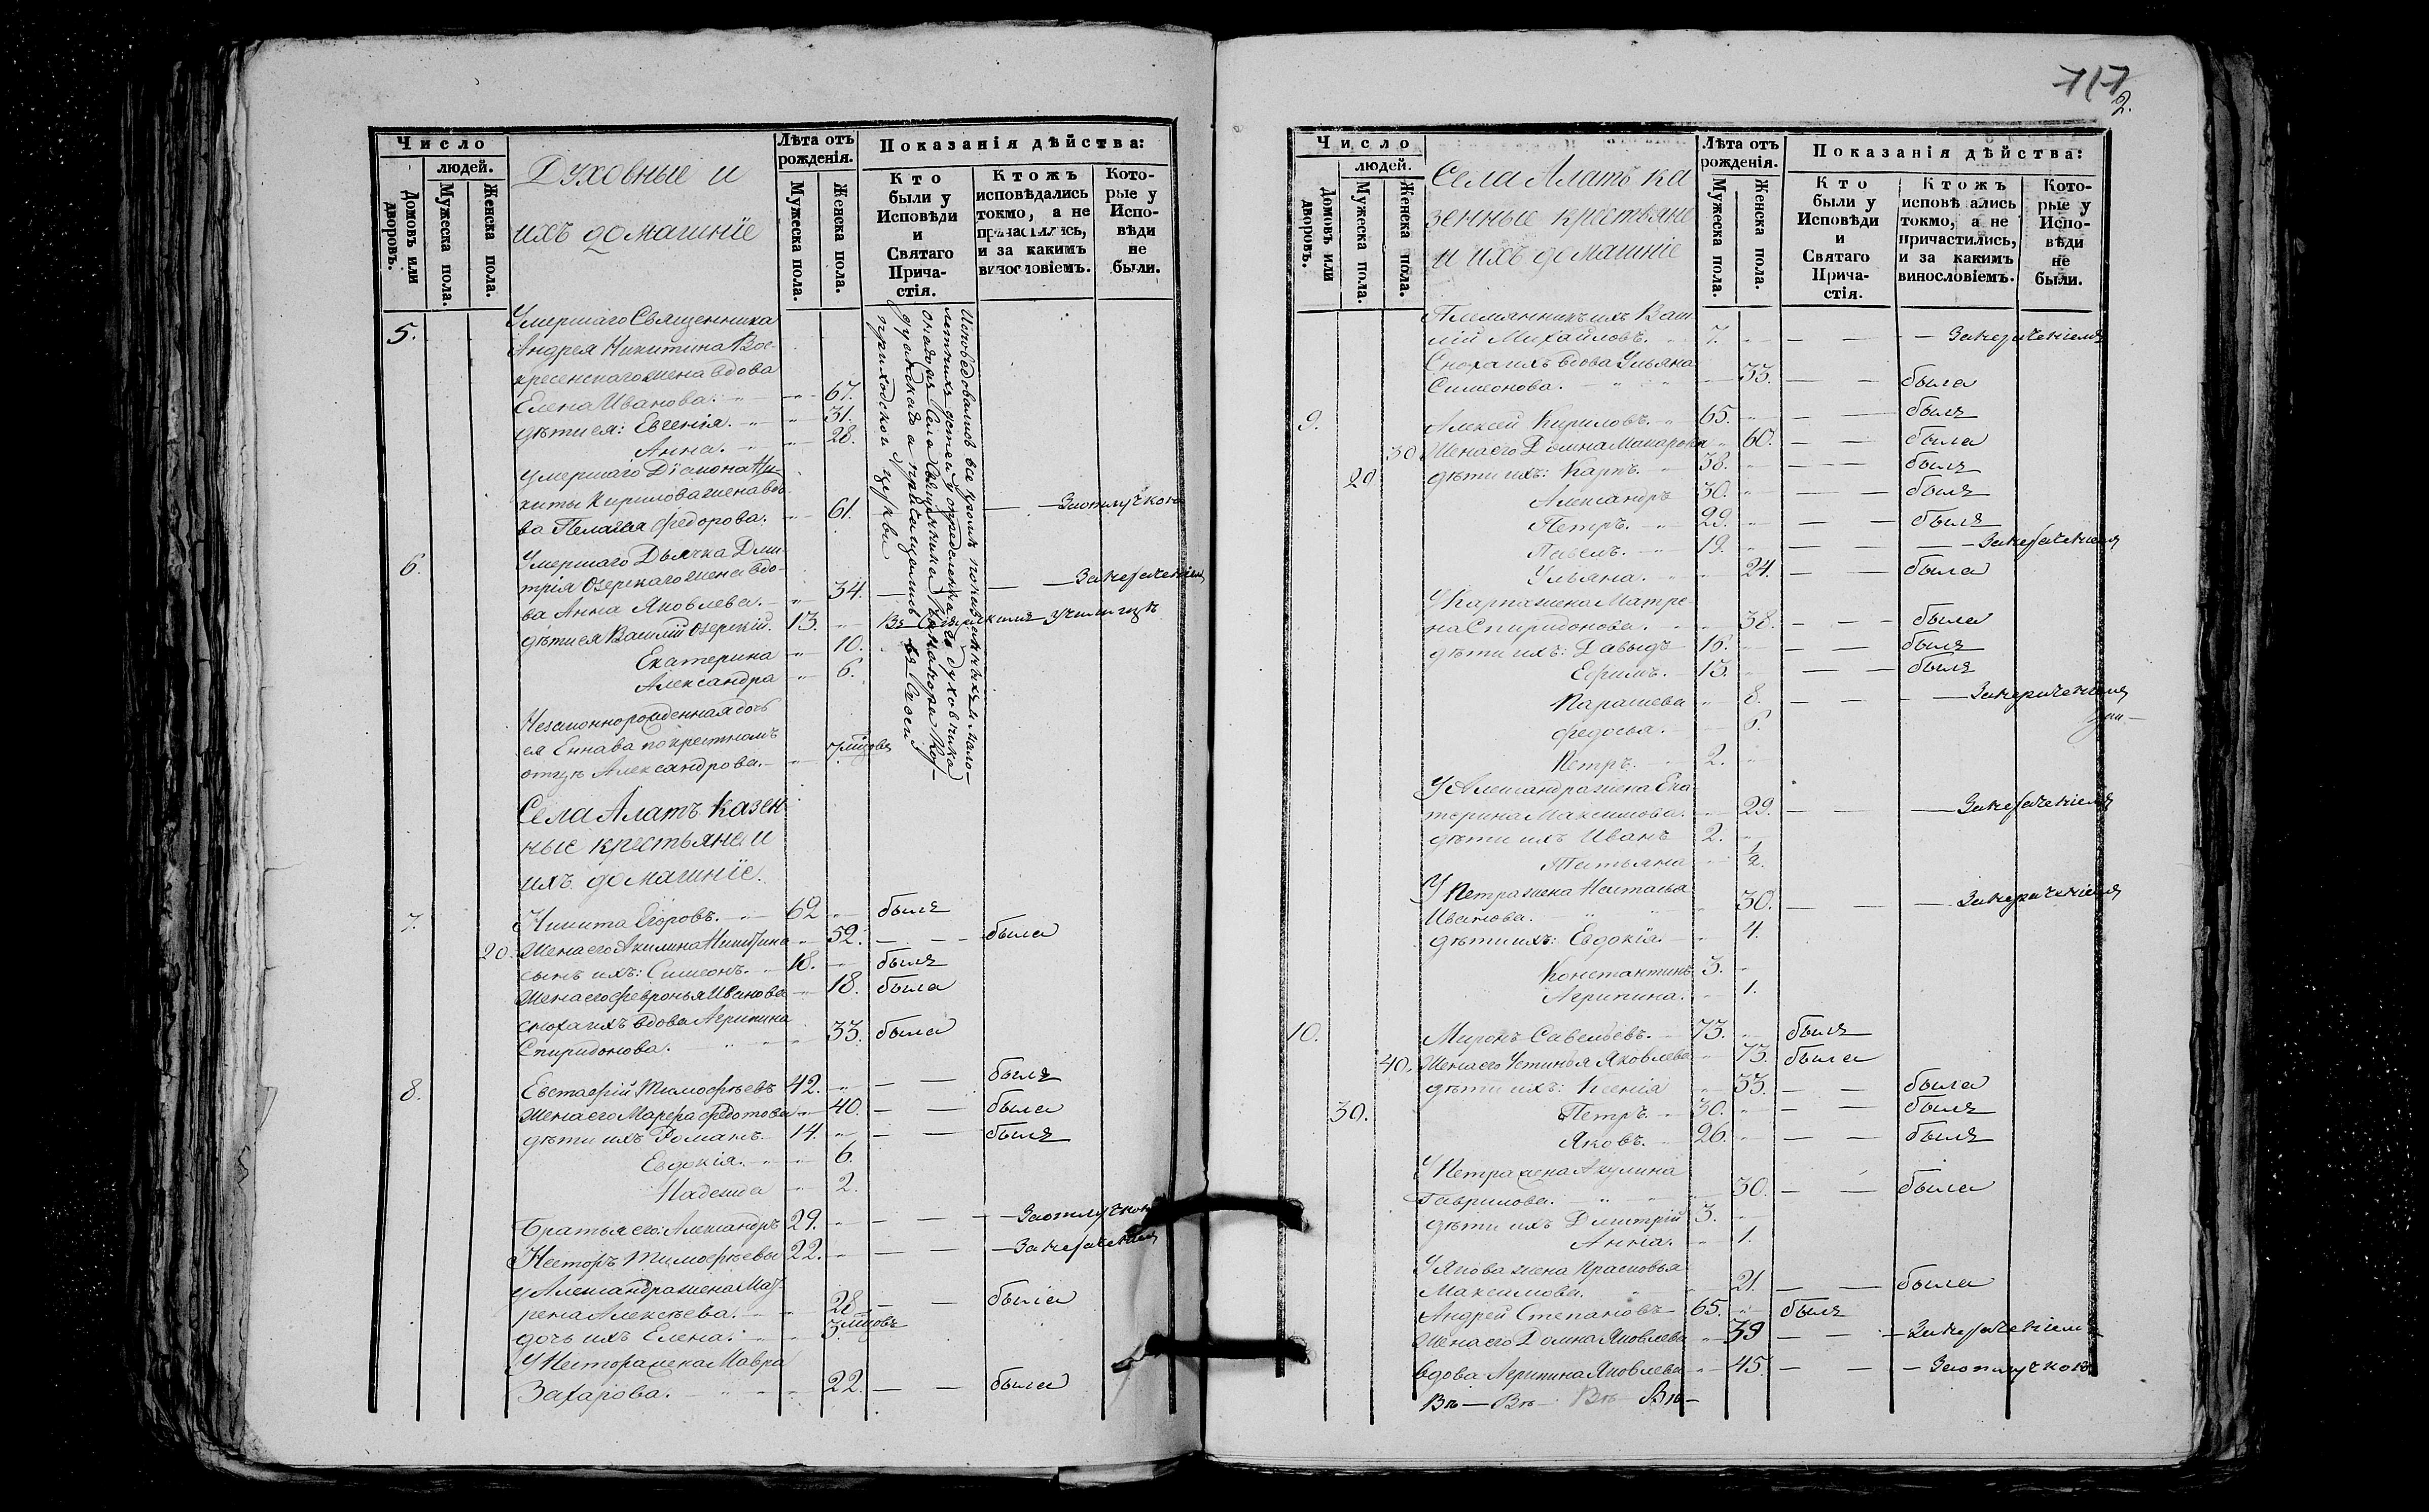 Число
людей.
Домовъ или дворовъ.
Мужеска пола.
Женска пола.
Духовные и
ихъ домашніе
Лѣта отъ рожденія.
Мужеска пола.
Женска пола.
Показанія дѣйства:
Кто были у Исповѣди и Святаго Прича-стія.
Ктожъ исповѣдались токмо, а не причастились, и за какимъ винословіемъ.
Кото-рые у Испо-вѣди не были.
5. Умершаго Священника
Андрея Никитина Вос-
кресенскаго жена вдова
Елена Иванова. 67.
дѣти ея: Евгенія. 31.
Анна. 28.
Умершаго Діакона Ни-
киты Кирилова жена вдо-
ва Пелагея Федорова. 61. За отлучкою
6. Умершаго Дьячка Дми-
трія Озерскаго жена вдо-
ва Анна Яковлева. 34. За нераченіемъ
дѣти ея Василій Озерскій. 13. Въ училищѣ
Екатерина 10.
Александра 6.
Незаконнорожденная дочь
ея по крестномъ
отцѣ Александрова. 7. мѣсцовъ
Исповѣдовались всѣ кромѣ показанныхъ и мало-
лѣтнихъ дѣтей у опредѣленнаго духовника
Села Священника
а причащались въ своей
приходской церкви
Села Алатъ казен-
ные крестьяне и
ихъ домашніе.
7. Никита Егоровъ. 62 былъ
20. Жена его Акилина Никитина 52. была
сынъ ихъ: Симеонъ. 18. былъ
Жена его Февронья Иванова 18. была
сноха ихъ вдова Агрипина
Спиридонова. 33. была
8. Евстафій Тимофѣевъ 42. былъ
Жена его Марфа Федотова 40. была
дѣти ихъ Романъ. 14. былъ
Евдокія. 6.
Надежда 2.
братья его: Александръ 29. За отлучкою
Несторъ Тимофѣевы 22. За нераченіемъ
У Александра жена Мат-
рена Алексѣева. 28. была
дочь ихъ Елена. 3. мѣсцовъ
У Нестора жена Мавра
Захарова. 22. была
717
2.
Число
людей.
Домовъ или дворовъ.
Мужеска пола.
Женска пола.
Села Алатъ ка
зенные крестьяне
и ихъ домашніе
Лѣта отъ рожденія.
Мужеска пола.
Женска пола.
Показанія дѣйства:
Кто были у Исповѣди и Святаго Прича-стія.
Ктожъ исповѣ ались токмо, а не причастились, и за какимъ винословіемъ.
Кото-рые у Испо-вѣди не были.
Племянникъ ихъ Васи
лій Михайловъ. 7. За нераченіемъ
Сноха ихъ вдова Ульяна
Симеонова. 33. была
9. Алексѣй Кириловъ. 65. былъ
30 Жена его Домна Макарова 60. была
20 дѣти ихъ: Карпъ. 38. былъ
Александръ 30. былъ
Петръ. 29. былъ
Павелъ. 19. За нераченіемъ
Ульяна. 24. была
У Карпа жена Матре-
на Спиридонова. 38. была
дѣти ихъ: Давыдъ 16. былъ
Ефимъ. 13. былъ
Парасковья 8. За нераченіемъ
Федосья. 6.
Петръ. 2.
У Александра жена Ека
терина Максимова. 29. За нераченіемъ
дѣти ихъ Иванъ 2.
Татьяна 1/2.
У Петра жена Наталья
Иванова. 30. За нераченіемъ
дѣти ихъ: Евдокія. 4.
Константинъ 3.
Агрипина. 1.
10. Миронъ Савельевъ. 73. былъ
40. Жена его Устинья Яковлева 73. была
дѣти ихъ: Ксенія 33. была
30. Петръ. 30. былъ
Яковъ. 26. былъ
У Петра жена Акулина
Гаврилова. 30. была
дѣти ихъ Дмитрій 3.
Анна. 1.
У Якова жена Прасковья
Максимова. 21. была
Андрей Степановъ 65. былъ
Жена его Домна Яковлева 39 За нераченіемъ
вдова Агрипина Яковлева 45. За отлучкою